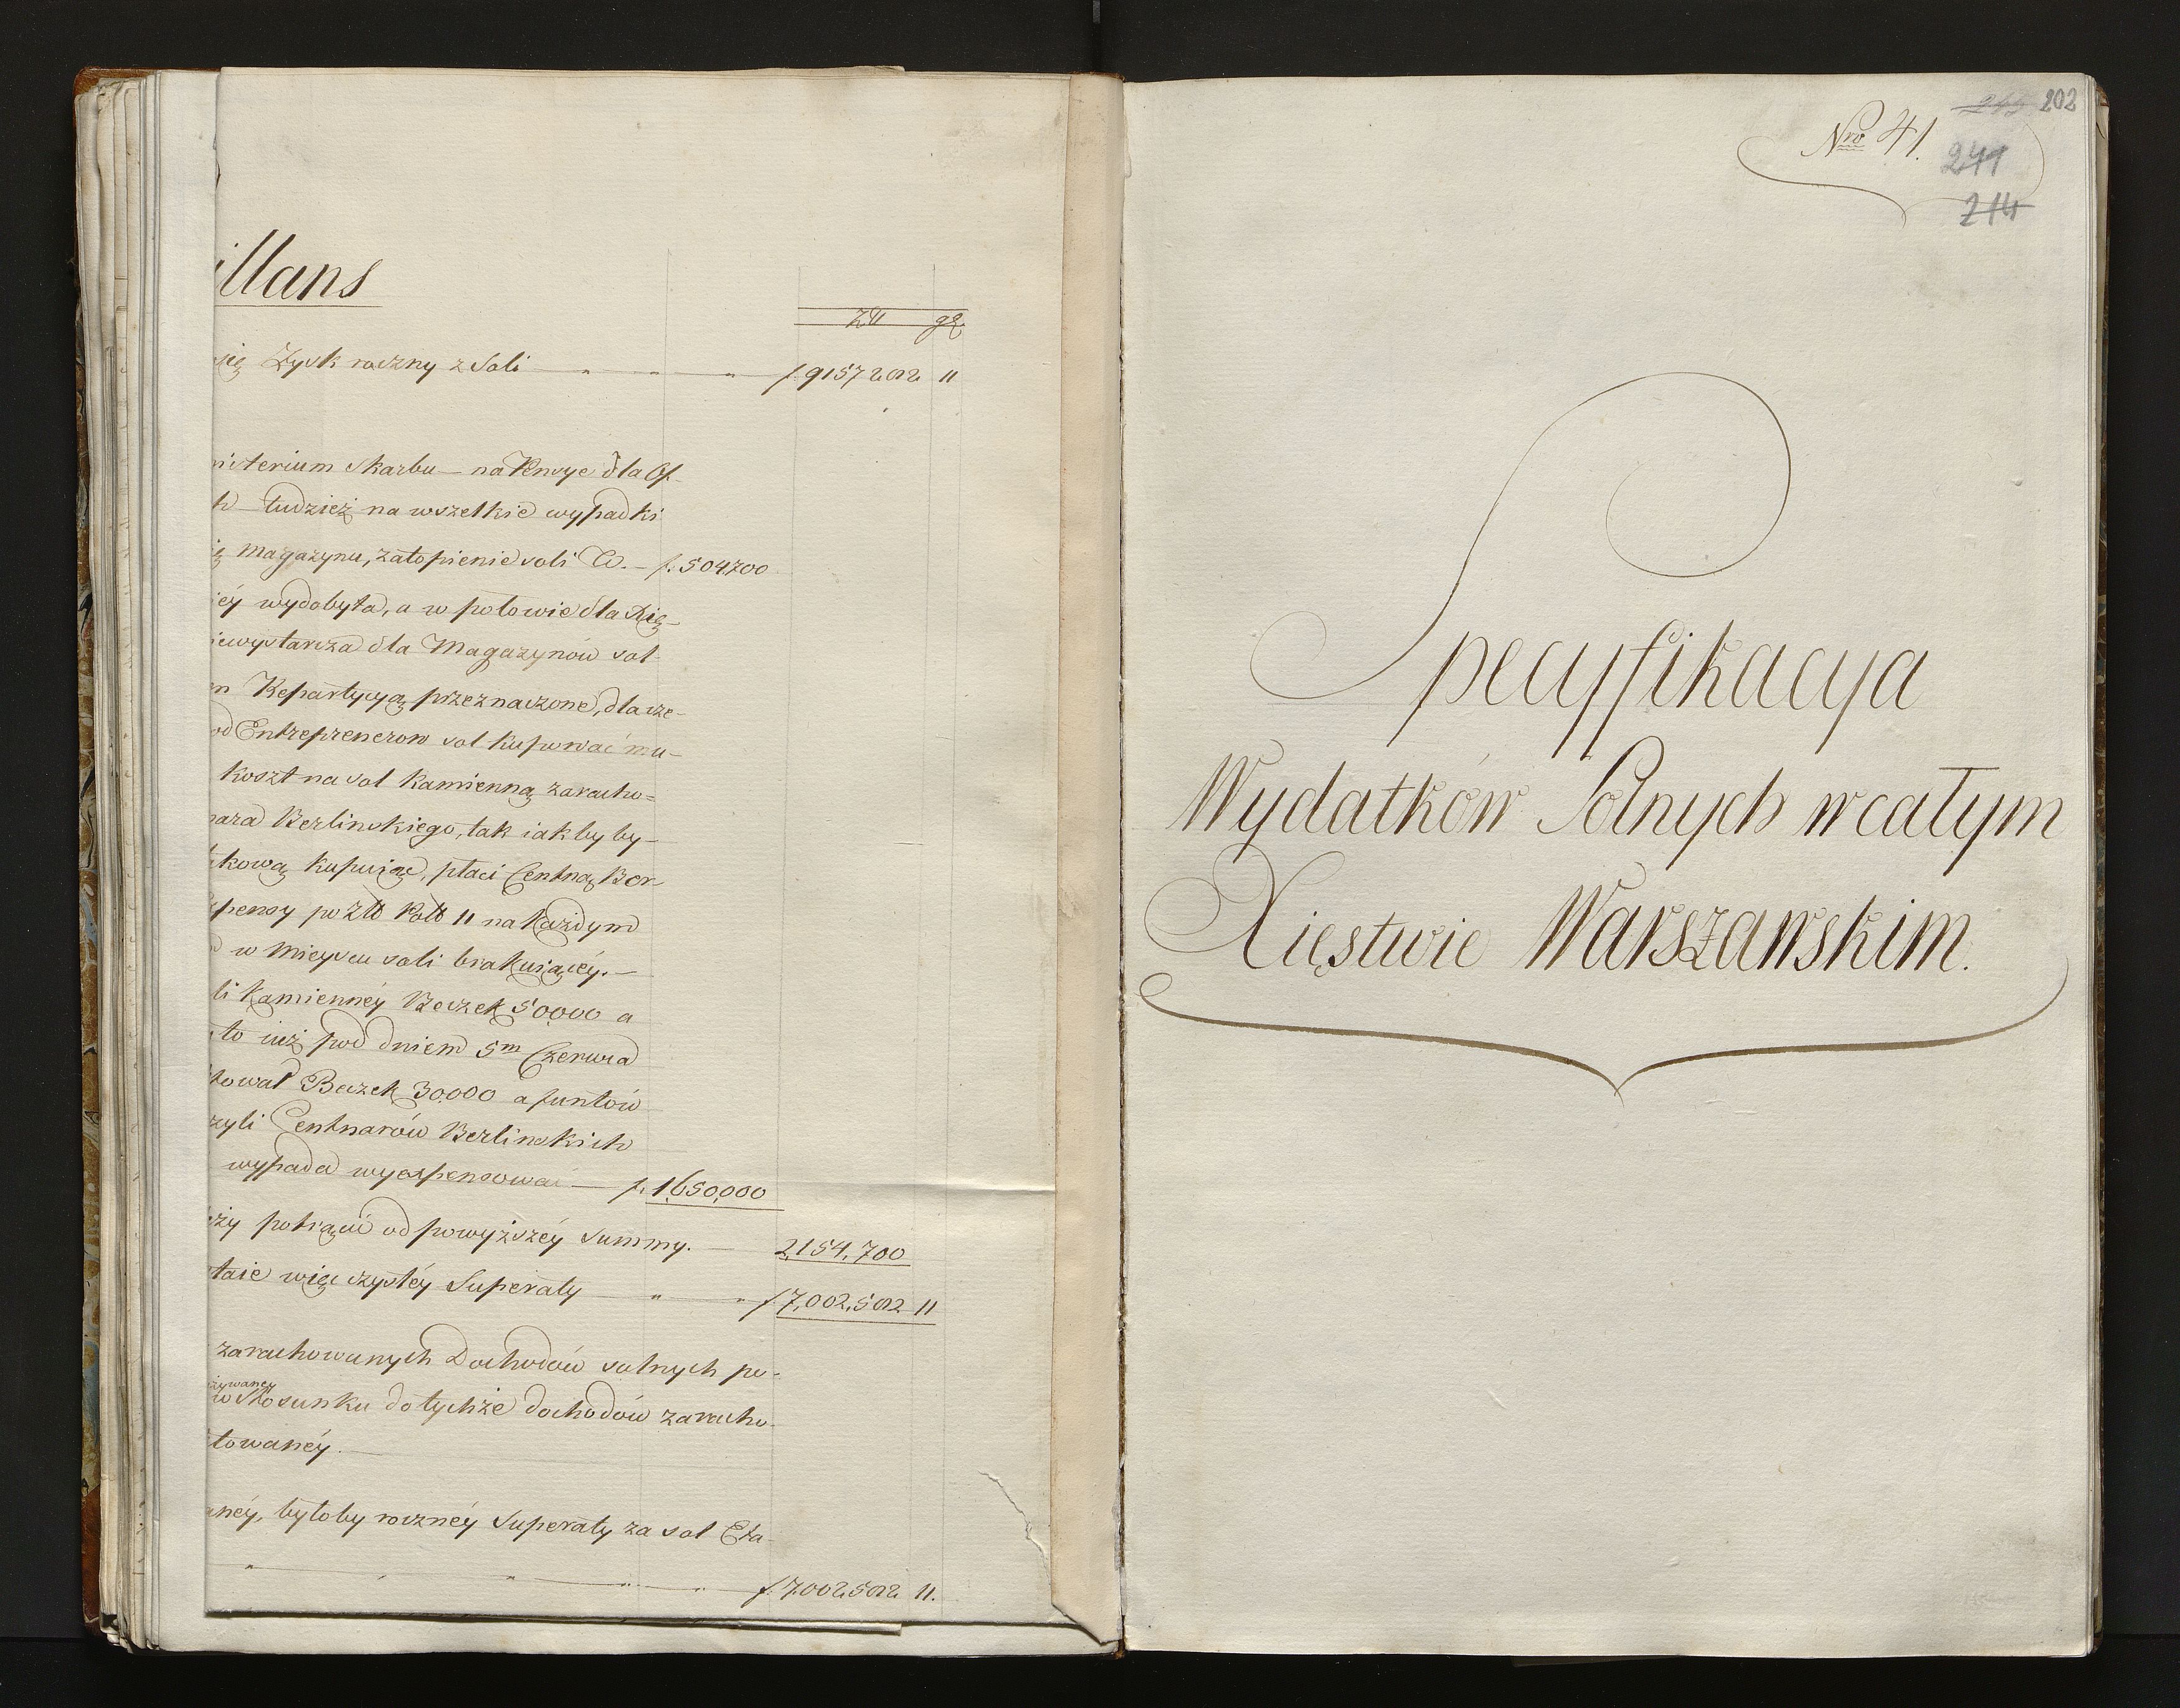 illans
Złł gr.
się Zysk roczny z Soli — " — " — " f. 9157202 11
nisterium Skarbu — na Pensye dla Of-
h tudzież na wszelkie wypadki
ię magazynu, zatopienie soli &. — f. 504,700
iéy wydobyta, a w połowie dla Xię-
iewystarcza dla Magazynów sol-
en Repartycyą przeznaczone, dla cze-
od Entreprenerow sol kupować mu-
koszt na sol Kamienną zaracho=
nara Berlinskiego, tak iak by by-
kową kupuiąc, płaci Centnar Ber-
spensy po Zło Pols 11 na każdym
w mieyscu soli brakuiącéy. —
li Kamiennéy Beczek 50,000 a
to iuż pod dniem 5m Czerwca
tował Beczek 30.000 a funtów
czyli Centnarów Berlinskich
wypada wyexpensować — f. 1,650,000
ży potrącić od powyższéy summy. — 2,154,700
taie więc czystéy Superaty — " — " f 7,002,502 11
zarachowanych Dochodów solnych po-
żywaney
w Stosunku do tychże dochodów zaracho-
towanéy. —
anéy, byłoby roczney Superaty za sol Eta-
" — " — " — " — " — f. 7.002,502 11.
202
Nro 41.
241
214
Specyfikacya
Wydatków Solnych w całym
Xięstwie Warszawskim.